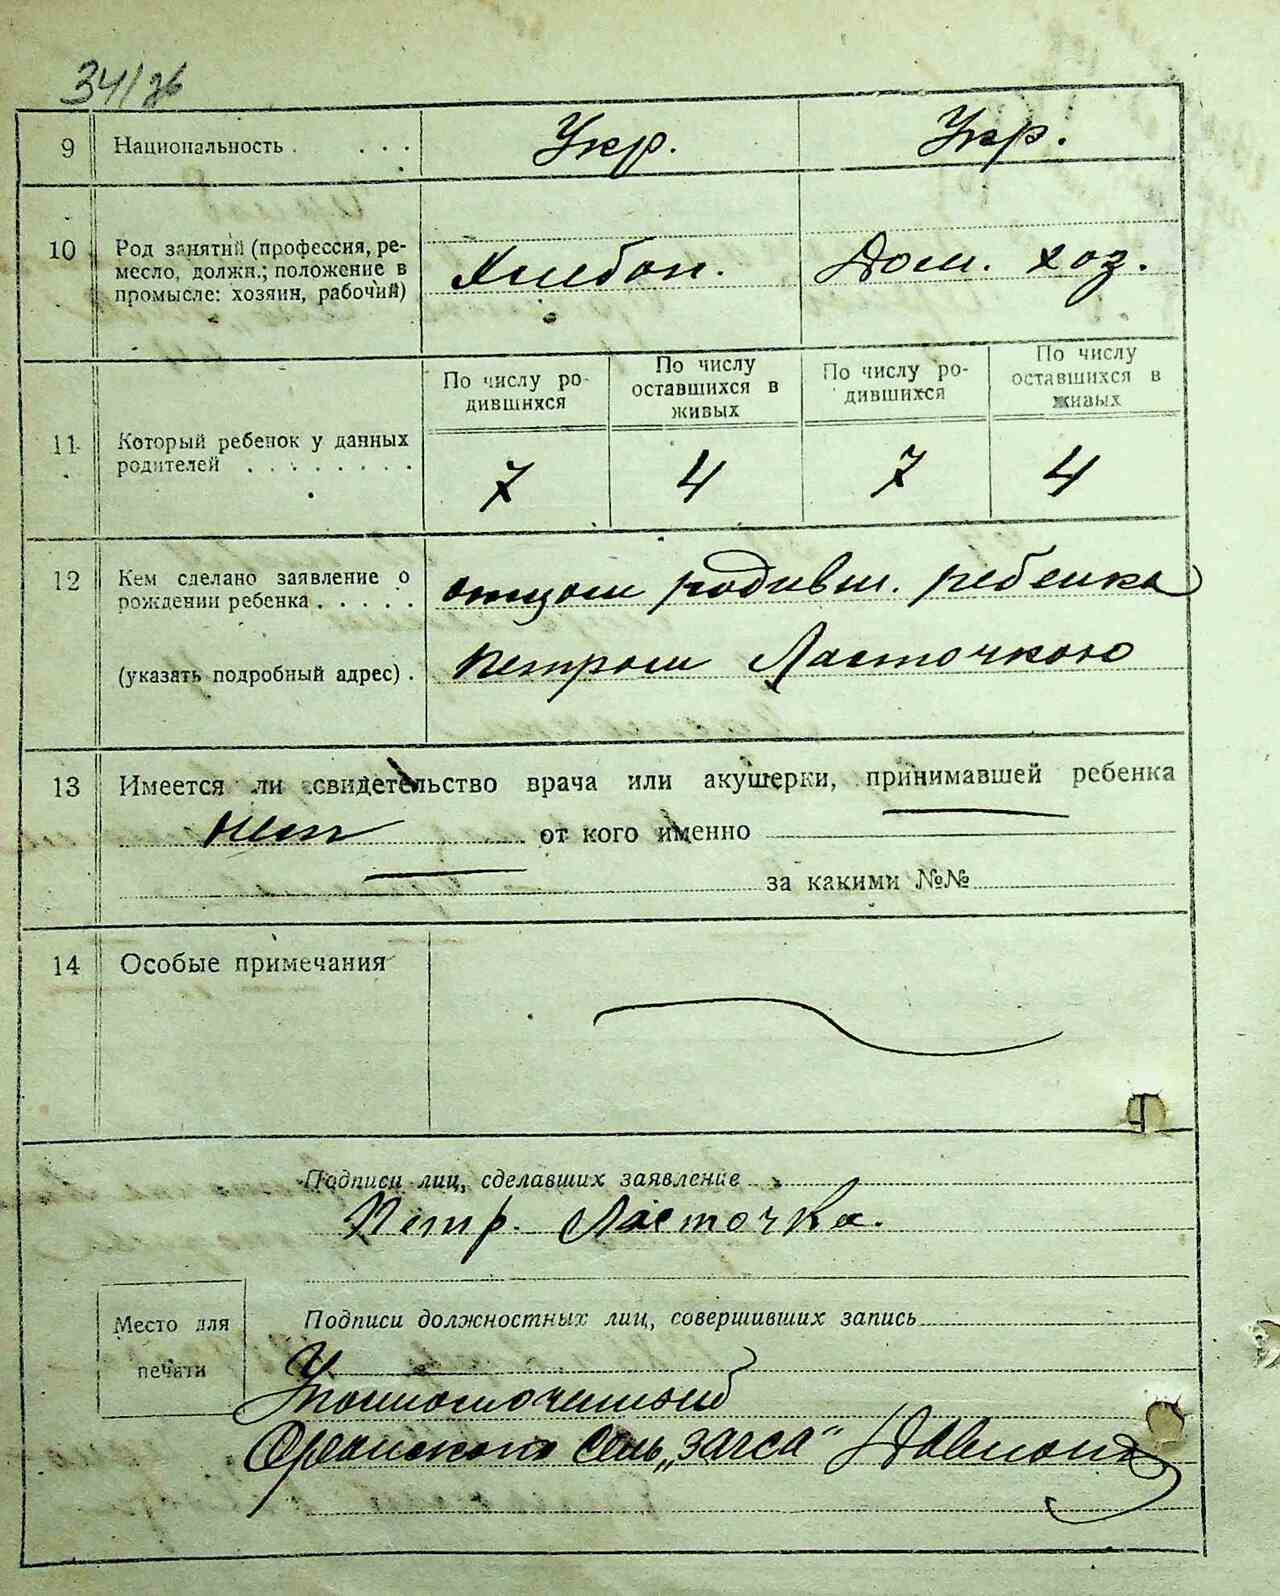 34/26
9 Национальность . . . . Укр. Укр.
10 Род занятий (профессия, ре-
месло, должн.; положение в
промысле: хозяин, рабочий)
Хлебоп. Дом. хоз.
11 Который ребенок у данных
родителей . . . . . . . .
По числу ро-
дившихся
По числу
оставшихся в
живых
По числу ро-
дившихся
По числу
оставшихся в
живых
7 4 7 4
12 Кем сделано заявление о
рождении ребенка . . . . .
(указать подробный адрес) .
отцом родивш. ребенка
Петром Ласточкою
13 Имеется ли свидетельство врача или акушерки, принимавшей ребенка
нет от кого именно
за какими №№
14 Особые примечания
Подписи лиц, сделавших заявление
Петр. Ласточка.
Место для
печати
Подписи должностных лиц, совершивших запись
Уполномоченный
сель „загса“